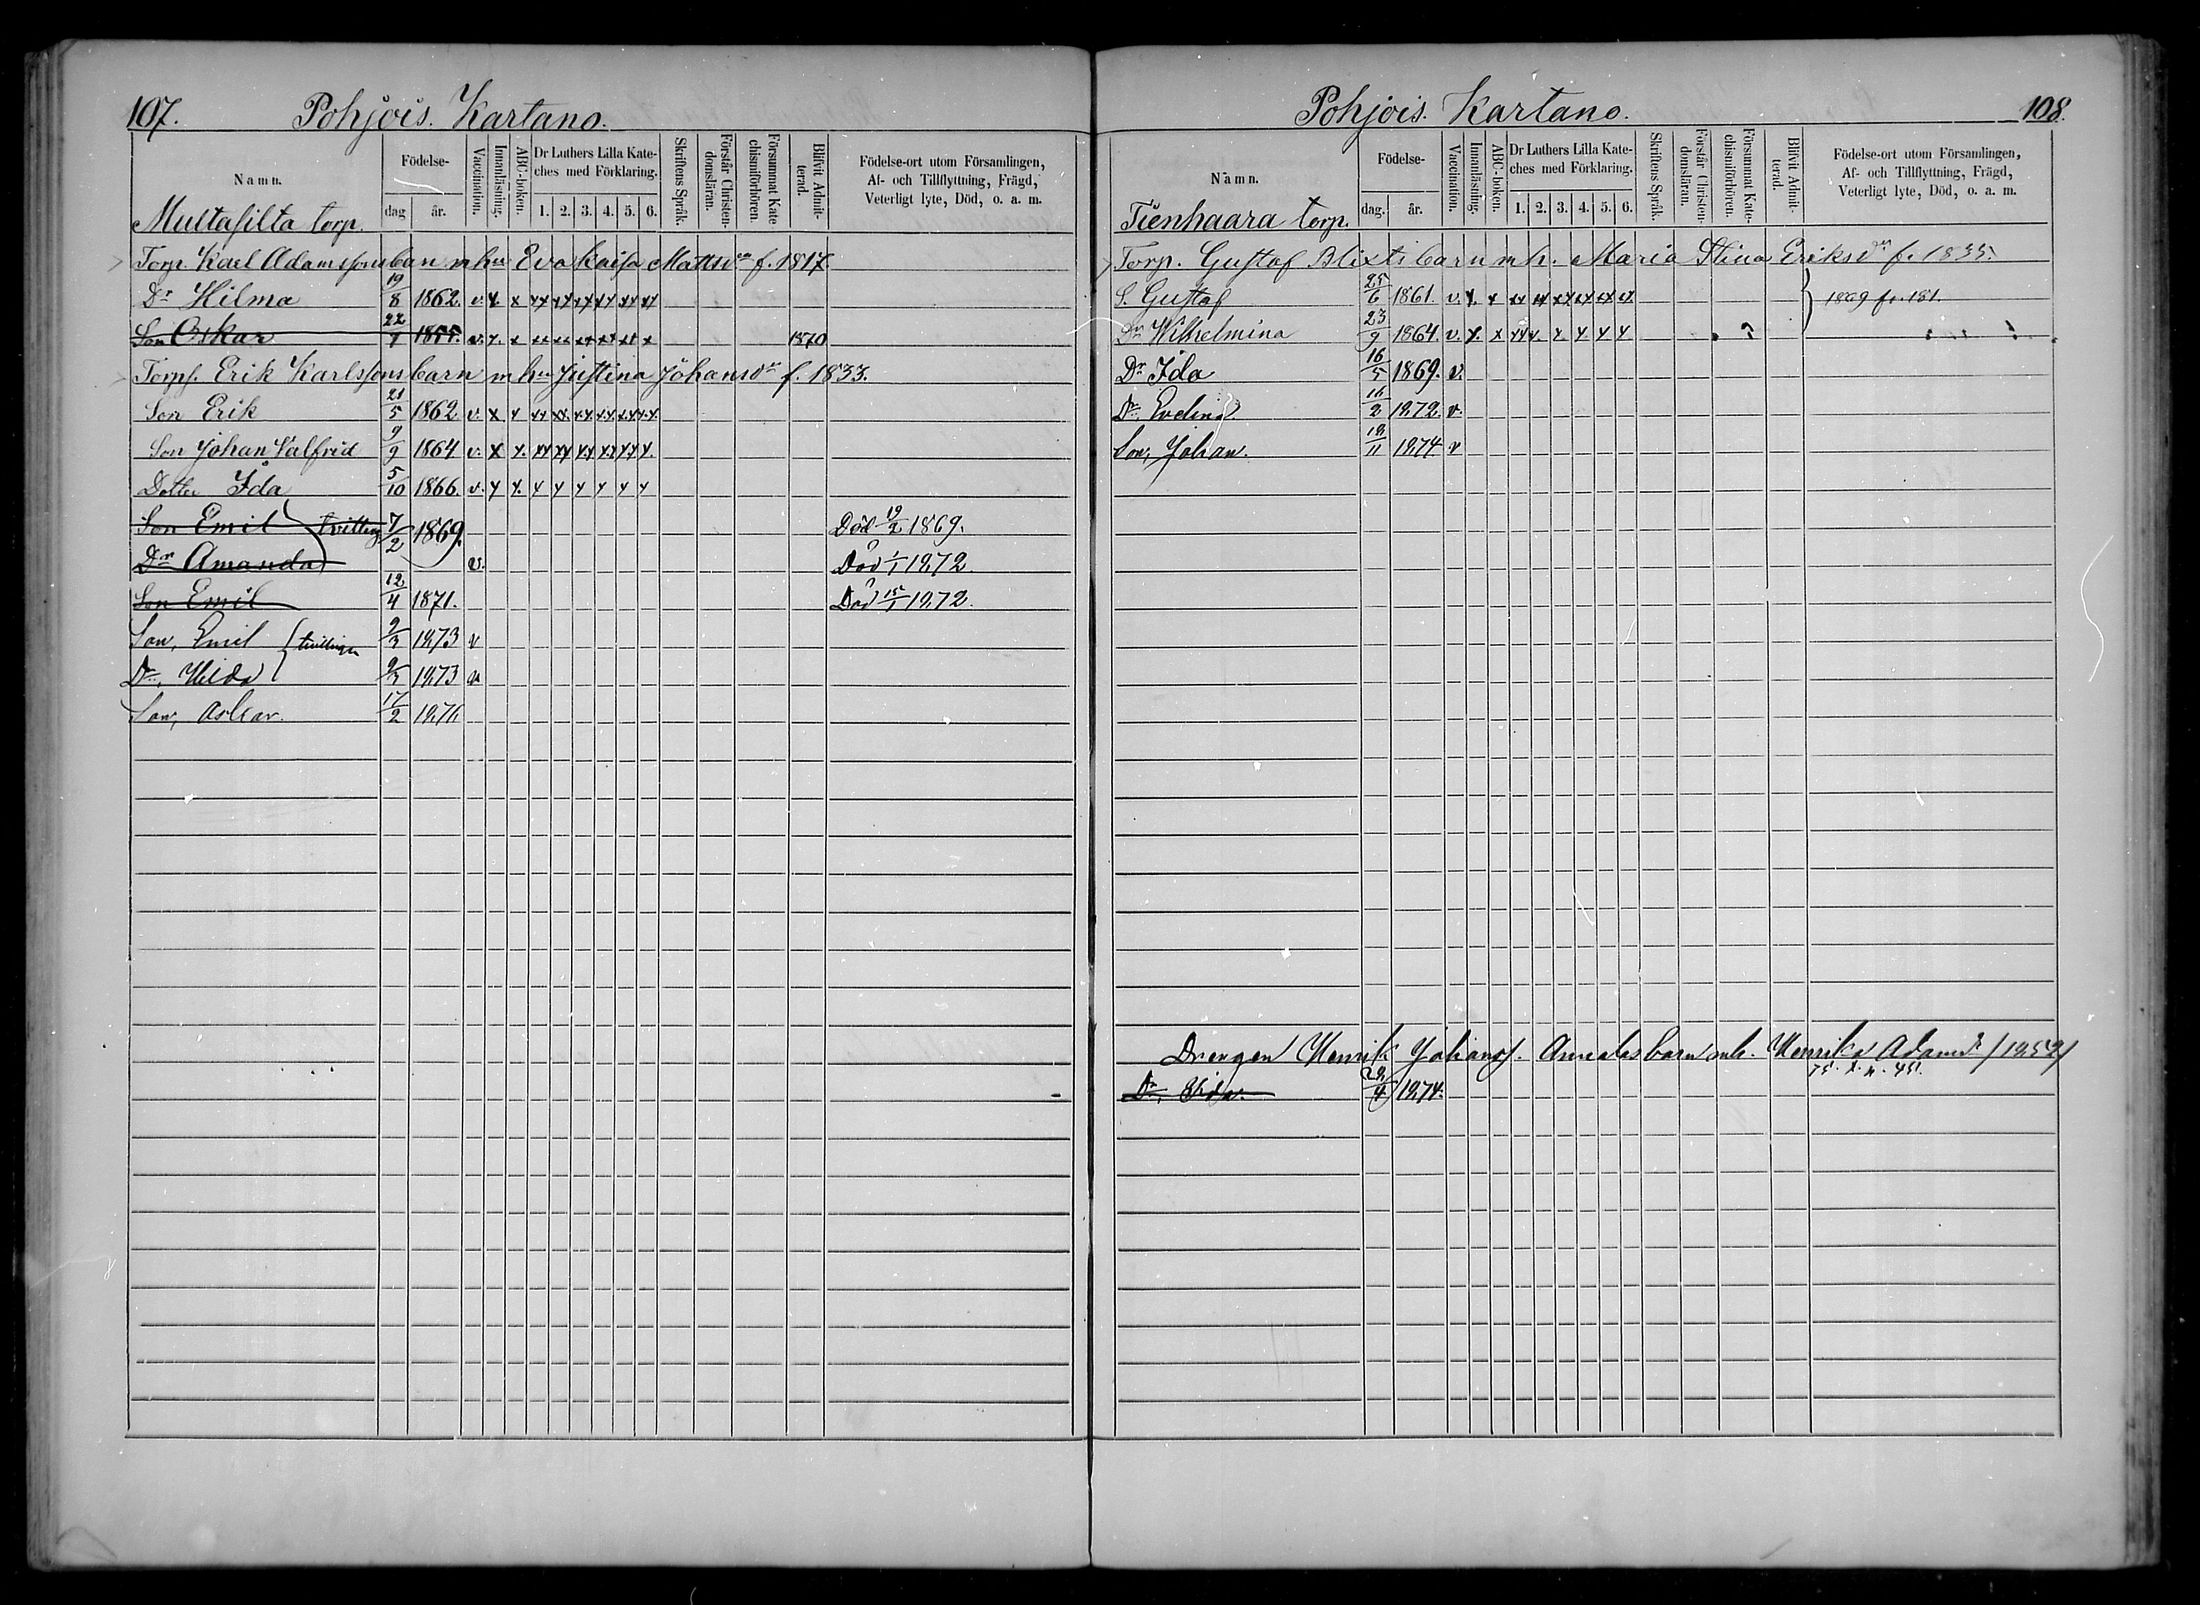 107. Pohjois. Kartano.
Namn. Födelse- dag år. Vaccination. Innanläsning. ABC-boken. Dr Luthers Lilla Kateches med Förklaring. 1. 2. 3. 4. 5. 6. Skriftens Språk. Förstår Christendomsläran. Försummat Katechismiförhören. Blifvit Admitterad. Födelse-ort utom Församlingen, Af- och Tillflyttning, Frägd, Veterligt lyte, Död, o. a. m.
Multasilta torp.
Torp. Karl Adamssons barn m hu Eva Kaisa Mattsdr f. 1817.
Dr Hilma 19/8 1862. v. x. x xx xx xx xx xx xx
Son Oskar 1855. v. x. x xx xx xx xx xx x 1870
Torps. Erik Karlssons barn m hu Justina Johansdr f. 1833.
Son Erik 21/5 1862 v. x x xx xx. xx xx xx xx
Son Johan Valfrid 9/9 1864 v. x x. xx xx xx xx xx x.
Dotter Ida 5/10 1866. v. x x. x x x x x x
Son Emil tvilling 7/2 1869. Död 19/2 1869.
Dr Amanda v. Död 1/1 1872.
Son Emil 12/4 1871. Död 15/1 1872.
Son, Emil tvillingar 9/3 1873 v
Dr. Hilda 9/3 1873 v
Son, Oskar. 17/2 1876
Pohjois. Kartano. 108.
Namn. Födelse- dag. år. Vaccination. Innanläsning. ABC-boken. Dr Luthers Lilla Kateches med Förklaring. 1. 2. 3. 4. 5. 6. Skriftens Språk. Förstår Christendomsläran. Försummat Katechismiförhören. Blifvit Admitterad. Födelse-ort utom Församlingen, Af- och Tillflyttning, Frägd, Veterligt lyte, Död, o. a. m.
Tienhaara torp.
Torp. Gustaf Blixts barn m h. Maria Stina Eriksdr f. 1835.
S. Gustaf 25/6 1861. v. x. x xx xx xx xx xx xx 1869 fr. 181.
Dr Wilhelmina 23/9 1864. v. x. x xx x. x. x. x x
Dr Ida 16/5 1869. v.
Dr. Evelina 16/2 1872. v.
Son, Johan. 18/11 1874 v
Drengen Henrik Johanss. barn mh. Henrika Adamsdr
Dr. Ida. 1874.